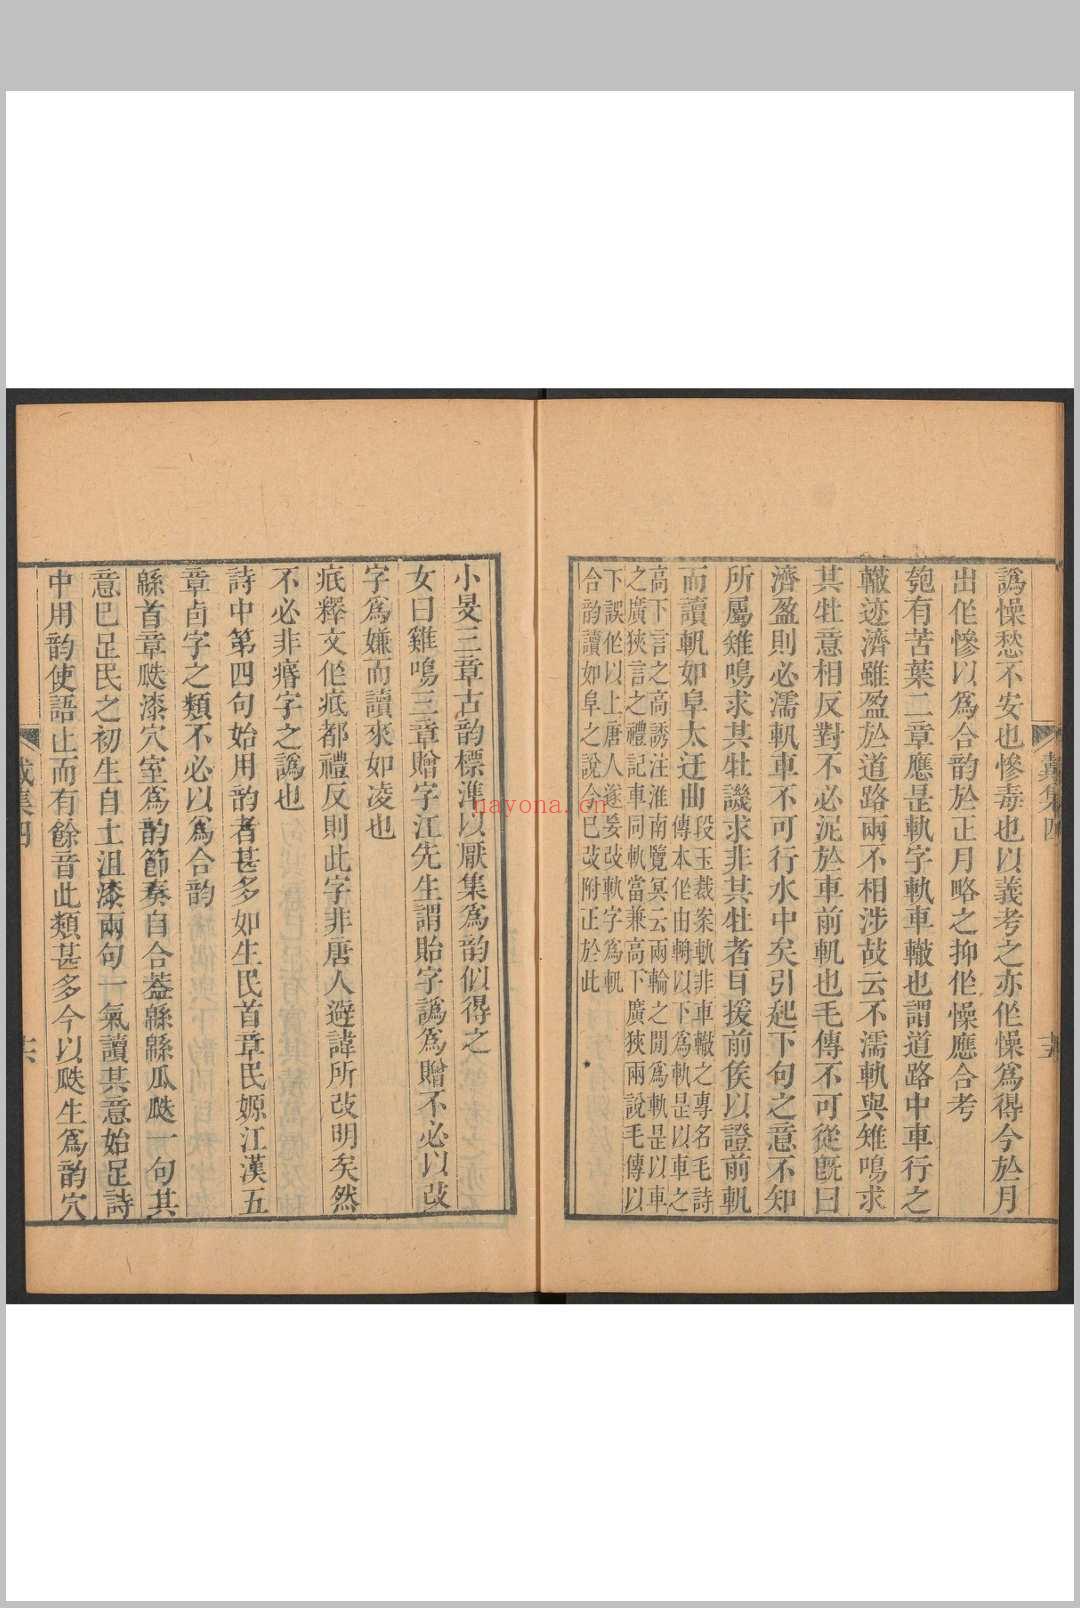 譌懆愁不安也慘毒也以義考之亦作懆爲得今於月
出作慘以爲合韵於正月略之抑作懆應合考
匏有苦葉二章應是軌字軌車轍也謂道路中車行之
轍迹濟雖盈於道路兩不相涉故云不濡軌與雉鳴求
其牡意相反對不必泥於車前軓也毛傳不可從旣曰
濟盈則必濡軌車不可行水中矣引起下句之意不知
所屬雉鳴求其牡譏求非其牡者耳援前侯以證前軓
而讀軓如阜太迂曲
段玉裁案軌非車轍之專名毛詩
傳本作由輈以下爲軌是以車之
高下言之高誘注淮南覽冥云兩輪之閒爲軌是以車
之廣狹言之禮記車同軌當兼高下廣狹兩說毛傳以
下誤作以上唐人遂妄改軌字爲軓
合韵讀如阜之說今已改附正於此
戴集四
小旻三章古韵標準以厭集爲韵似得之
女曰雞鳴三章贈字江先生謂貽字譌爲贈不必以改
字爲嫌而讀來如凌也
疧釋文作疷都禮反則此字非唐人避諱所改明矣然
不必非㾸字之譌也
詩中第四句始用韵者甚多如生民首章民嫄江漢五
章卣字之類不必以爲合韵
緜首章瓞漆穴室爲韵節奏自合葢緜緜瓜瓞一句其
意已足民之初生自土沮漆兩句一氣讀其意始足詩
中用韵使語止而有餘音此類甚多今以瓞生爲韵穴
戴集四
nayona.cn